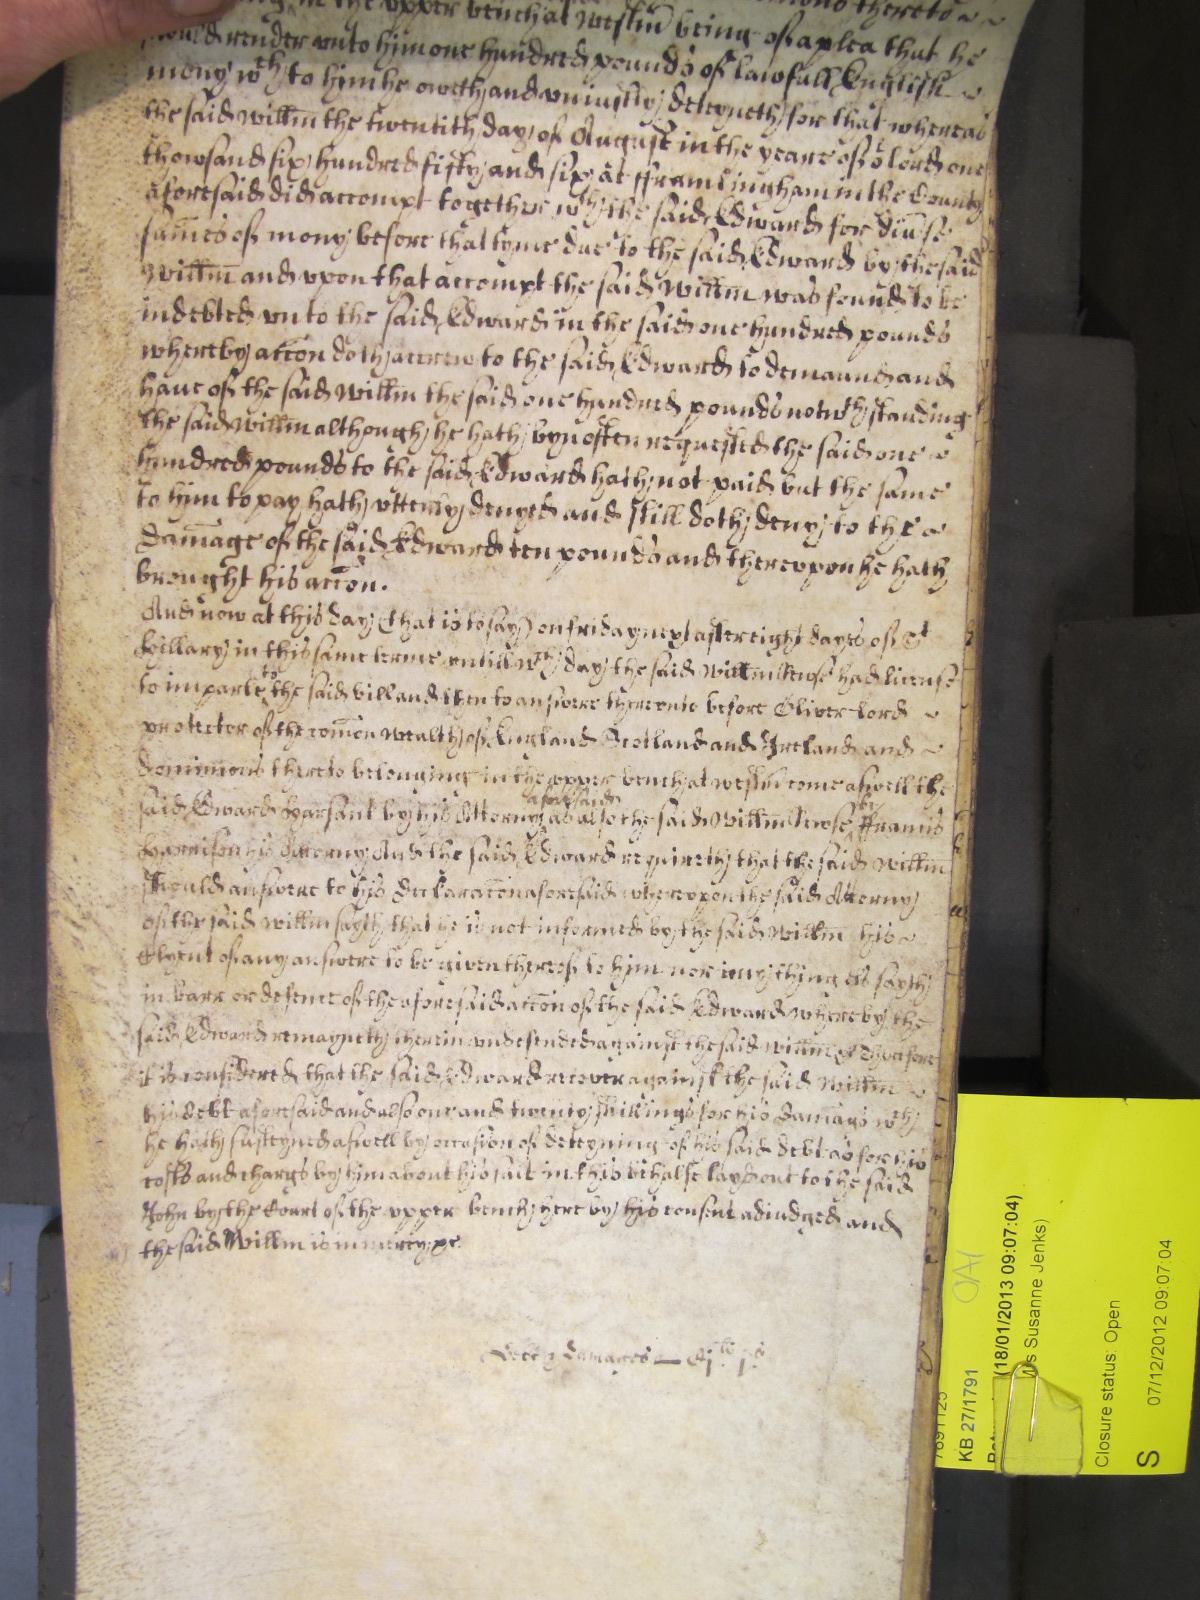 in the upper bench at Westm̄ being of a plea that he
should render unto him one hundred pounds of lawfull English
mony wch to him he oweth and uniustly deteyneth for that whereas
the said Willm̄ the twentith day of August in the yeare of oʳ lord one
thowsand six hundred fifty and six at fframlingham in the County
aforesaid did accompt together wth the said Edward for diūse
sum̄es of mony before that tyme due to the said Edward by the said
Willm̄ and vpon that accompt the said Willm̄ was found to be
indebted vnto the said Edward in the said one hundred pounds
whereby acc̄on doth accrew to the said Edward to demaund and
haue of the said Willm̄ the said one hundred pounds notwthstanding
the said Willm̄ although he hath byn often requested the said one
hundred pounds to the said Edward hath not paid but the same
to him to pay hath vtterly denyed and still doth deny to the
dam̄age of the said Edward ten pounds and therevpon he hath
brought his acc̄on.
And now at this day (that is to say) on friday next after eight dayes of St
Hillary in this same terme untill wch day the said Willm̄ had license
to imparle to the said bill and then to answere therevnto before Oliver lord
protector of the com̄on wealth of England Scotland and Ireland and
dominions thereto belonging in the vpper bench at Westm̄ come aswell the
said Edward Harsant by his Attorny aforesaid as also the said Willm̄ by ffrancis
Harrison his Attorny And the said Edward requireth that the said Willm̄
should answere to his declarac̄on aforesaid wherevpon the said Attorny
of the said Willm̄ sayth that he is not informed by the said Willm̄ his
Clyent of any answere to be given thereof to him nor any thing els sayth
in barr or defence of the aforesaid acc̄on of the said Edward whereby the
said Edward remayneth therein vndefended against the said Willm̄ Therefore
it is considered that the said Edward recover against the said Willm̄
his debt aforesaid and also one and twenty shillings for his dam̄ages wch
he hath susteyned aswell by occasion of deteyning of his said debt as for his
costs and chargs by him about his suit in this behalfe layd out to the said
John by the Court of the vpper bench here by his consent adiudged and
the said Willm̄ is in mercy &c
Debt & damages — Cjli js
KB 27/1791
(18/01/2013 09:07:04)
Ms Susanne Jenks)
Closure status: Open
07/12/2012 09:07:04
S